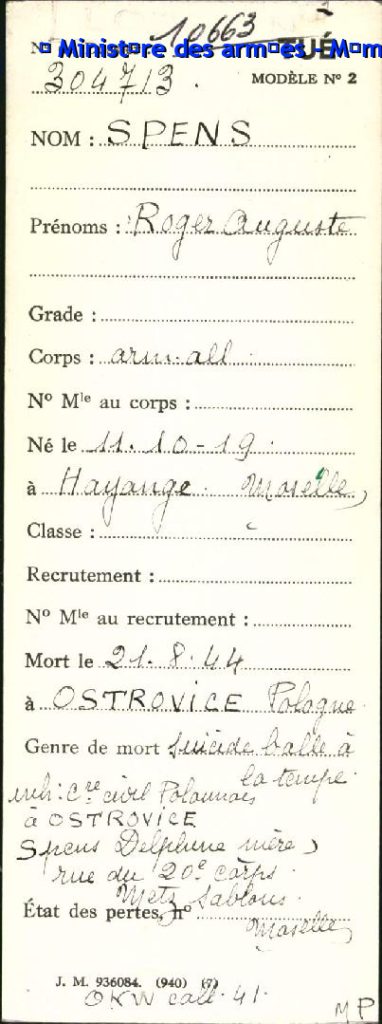 10663
TUÉ
¤ Minist¤re des arm¤es - M¤m
304713.
MODÈLE Nº 2
NOM : SPENS
Prénoms : Roger Auguste
Grade :
Corps : arm. all
Nº Mle au corps :
Né le 11.10-19.
à Hayange. Moselle
Classe :
Recrutement :
Nº Mle au recrutement :
Mort le 21.8.44
à OSTROVICE Pologne
Genre de mort suicide balle à
la tempe.
inh: cre civil Polonnais
à OSTROVICE
Spens Delphine mère,
rue du 20e corps.
Metz Sablons.
État des pertes, nº
Moselle
J. M. 936084. (940) (7)
OKW call. 41.
MP